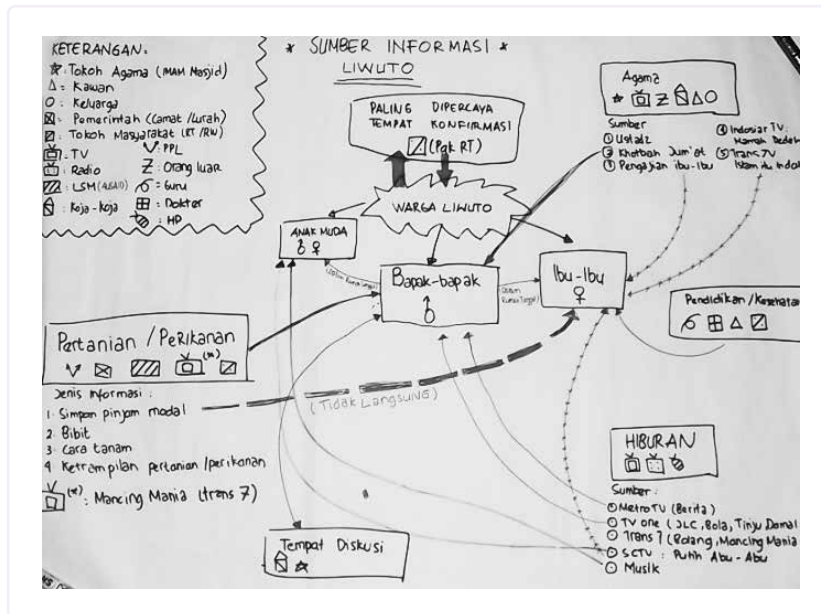 KETERANGAN.
: Tokoh Agama (IMAM Masjid)
: Kawan
: Keluarga
: Pemerintah (Camat/Lurah)
: Tokoh Masyarakat (RT/RW)
: TV
: PPL
: Radio
Z : Orang luar
: LSM
: Guru
: Koja-Koja
: Dokter
: HP
* SUMBER INFORMASI *
LIWUTO
PALING DIPERCAYA
TEMPAT KONFIRMASI
(Pak RT)
WARGA LIWUTO
ANAK MUDA
Bapak-bapak
Ibu-Ibu
Agama
Z
Sumber
① Ustadz
② Khotbah Jum'at
③ Pengajian ibu-ibu
④ Indosiar TV:
Mamah Dedeh
⑤ Trans TV
Islam itu Indah
Pendidikan/Kesehatan
Pertanian/Perikanan
(*)
Jenis Informasi:
1. Simpan pinjam modal
2. Bibit
3. Cara tanam
4. Ketrampilan pertanian/perikanan
(*) : Mancing Mania (trans 7)
(TIDAK LANGSUNG)
Tempat Diskusi
HIBURAN
Sumber:
MetroTV (Berita)
TV one (JLC, Bola, Tinju Dunia
Trans 7 (Bolang, Mancing Mania
SCTV : Putih Abu-Abu
Musik